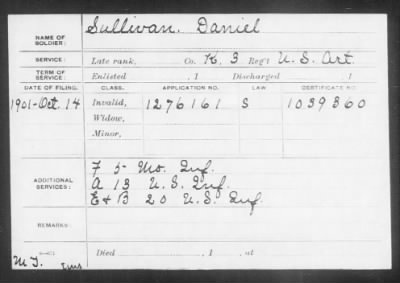 NAME OF SOLDIER: Sullivan. Daniel
SERVICE: Late rank, Co. K, 3 Reg't U.S. Art.
TERM OF SERVICE: Enlisted , 1 Discharged , 1
DATE OF FILING. CLASS. APPLICATION NO. LAW. CERTIFICATE NO.
1901-Oct. 14 Invalid, 1276161 S 1039360
Widow,
Minor,
ADDITIONAL SERVICES: F 5- Mo. Inf.
A 13 U.S. Inf.
E & B 20 U.S. Inf.
REMARKS:
Died , 1 , at